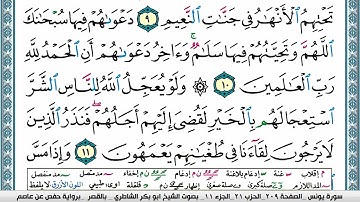 تَحْتِهِمُ ٱلْأَنْهَٰرُ فِى جَنَّٰتِ ٱلنَّعِيمِ ٩ دَعْوَىٰهُمْ فِيهَا سُبْحَٰنَكَ
ٱللَّهُمَّ وَتَحِيَّتُهُمْ فِيهَا سَلَٰمٌ ۚ وَءَاخِرُ دَعْوَىٰهُمْ أَنِ ٱلْحَمْدُ لِلَّهِ
رَبِّ ٱلْعَٰلَمِينَ ١٠ ۞ وَلَوْ يُعَجِّلُ ٱللَّهُ لِلنَّاسِ ٱلشَّرَّ
ٱسْتِعْجَالَهُم بِٱلْخَيْرِ لَقُضِىَ إِلَيْهِمْ أَجَلُهُمْ ۖ فَنَذَرُ ٱلَّذِينَ
لَا يَرْجُونَ لِقَآءَنَا فِى طُغْيَٰنِهِمْ يَعْمَهُونَ ١١ وَإِذَا مَسَّ
سورة يونس - الصفحة ٢٠٩ - الحزب ٢١ - الجزء ١١ بصوت الشيخ أبو بكر الشاطري - بالقصر - برواية حفص عن عاصم